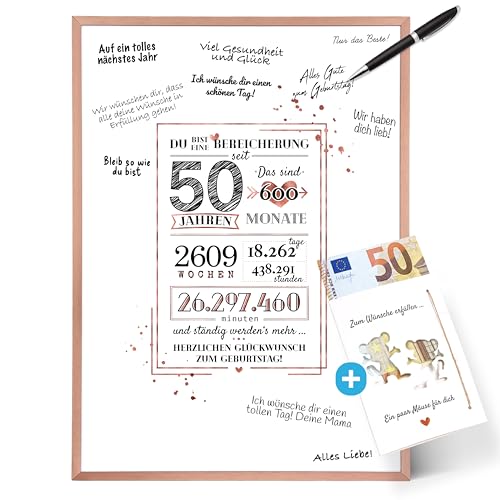 Auf ein tolles
nächstes Jahr
Viel Gesundheit
und Glück
Nur das Beste!
Ich wünsche dir einen
schönen Tag!
Alles Gute
zum Geburtstag!
Wir wünschen dir, dass
alle deine Wünsche in
Erfüllung gehen!
Wir haben
dich lieb!
Bleib so wie
du bist
DU BIST EINE BEREICHERUNG
seit
50
JAHREN
Das sind
600
MONATE
2609
WOCHEN
18.262 tage
438.291
stunden
26.297.460
minuten
und ständig werden's mehr ...
HERZLICHEN GLÜCKWUNSCH
ZUM GEBURTSTAG!
50
Zum Wünsche erfüllen ...
Ein paar Mäuse für dich
+
Ich wünsche dir einen
tollen Tag! Deine Mama
Alles Liebe!